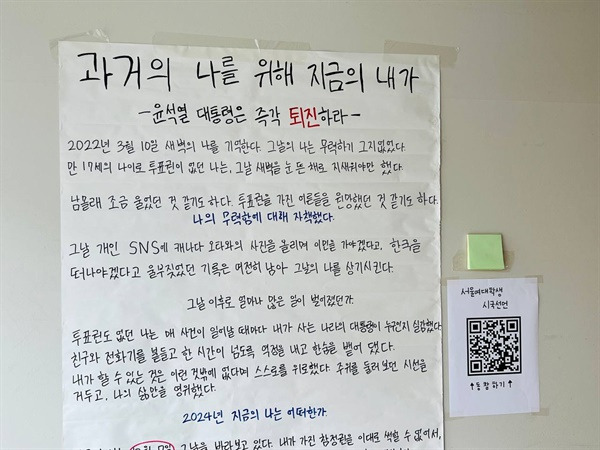 과거의 나를 위해 지금의 내가
-윤석열 대통령은 즉각 퇴진하라-
2022년 3월 10일 새벽의 나를 기억한다. 그날의 나는 무력하기 그지없었다.
만 17세의 나이로 투표권이 없던 나는, 그날 새벽을 눈 뜬 채로 지새워야만 했다.
남몰래 조금 울었던 것 같기도 하다. 투표권을 가진 이른들을 원망했던 것 같기도 하다.
나의 무력함에 대해 자책했다.
그날 개인 SNS에 캐나다 오타와의 사진을 올리며 이민을 가야겠다고, 한국을
떠나야겠다고 울부짖었던 기록은 여전히 남아 그날의 나를 상기시킨다.
그날 이후로 얼마나 많은 일이 벌어졌던가.
투표권도 없던 나는 매 사건이 일어날 때마다 내가 사는 나라의 대통령이 누군지 실감했다.
친구와 전화기를 붙들고 한 시간이 넘도록 역정을 내고 한숨을 뱉어 댔다.
내가 할 수 있는 것은 이런 것밖에 없다며 스스로를 위로했다. 주위를 둘러보던 시선을
거두고, 나의 삶만을 영위했다.
2024년 지금의 나는 어떠한가.
그날을 바라보고 있다. 내가 가진 참정권을 이대로 썩힐 수 없어서,
서울여대학생
시국선언
↑동참하기↑